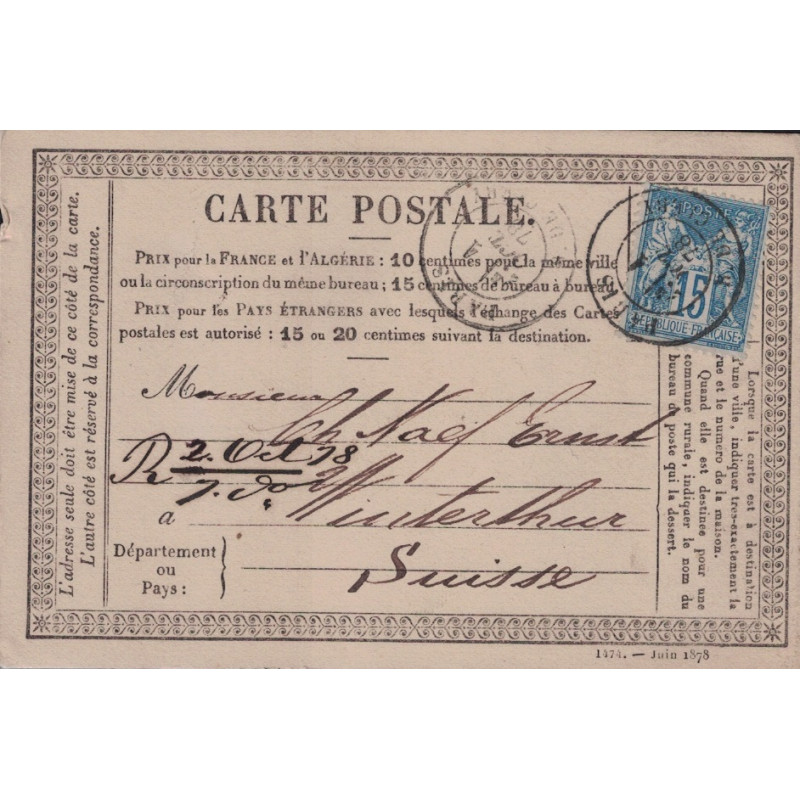 CARTE POSTALE.
PRIX pour la FRANCE et l'ALGÉRIE : 10 centimes pour la même ville
ou la circonscription du même bureau ; 15 centimes de bureau à bureau.
PRIX pour les PAYS ÉTRANGERS avec lesquels l'échange des Cartes
postales est autorisé : 15 ou 20 centimes suivant la destination.
Monsieur
Ch Naef Ernst
R 2. Oct 78
7. do
a Winterthur
Département
ou
Pays :
Suisse
L'adresse seule doit être mise de ce côté de la carte.
L'autre côté est réservé à la correspondance.
POSTE
15
REPUBLIQUE FRANÇAISE
PARIS
78
Lorsque la carte est à destination
d'une ville, indiquer très-exactement la
rue et le numero de la maison.
Quand elle est destinée pour une
commune rurale, indiquer le nom du
bureau de poste qui la dessert.
1474. — Juin 1878